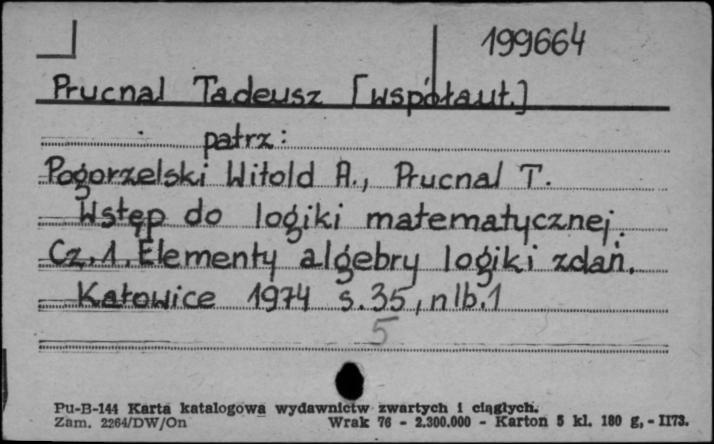 199664
Prucnal Tadeusz [współaut.]
patrz:
Pogorzelski Witold A., Prucnal T.
Wstęp do logiki matematycznej.
Cz. 1. Elementy algebry logiki zdań.
Katowice 1974 s. 35, nlb. 1
5
Pu-B-144 Karta katalogowa wydawnictw zwartych i ciągłych.
Zam. 2264/DW/On Wrak 76 - 2.300.000 - Karton 5 kl. 180 g, - II73.